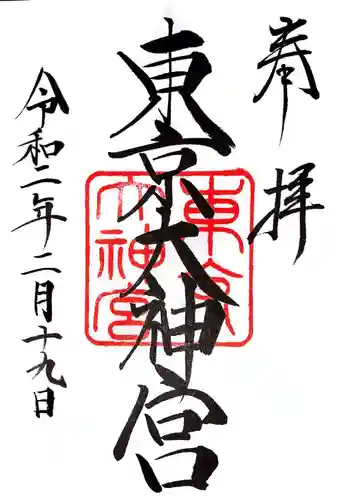 奉拝
東京大神宮
東京大神宮
令和二年二月十九日